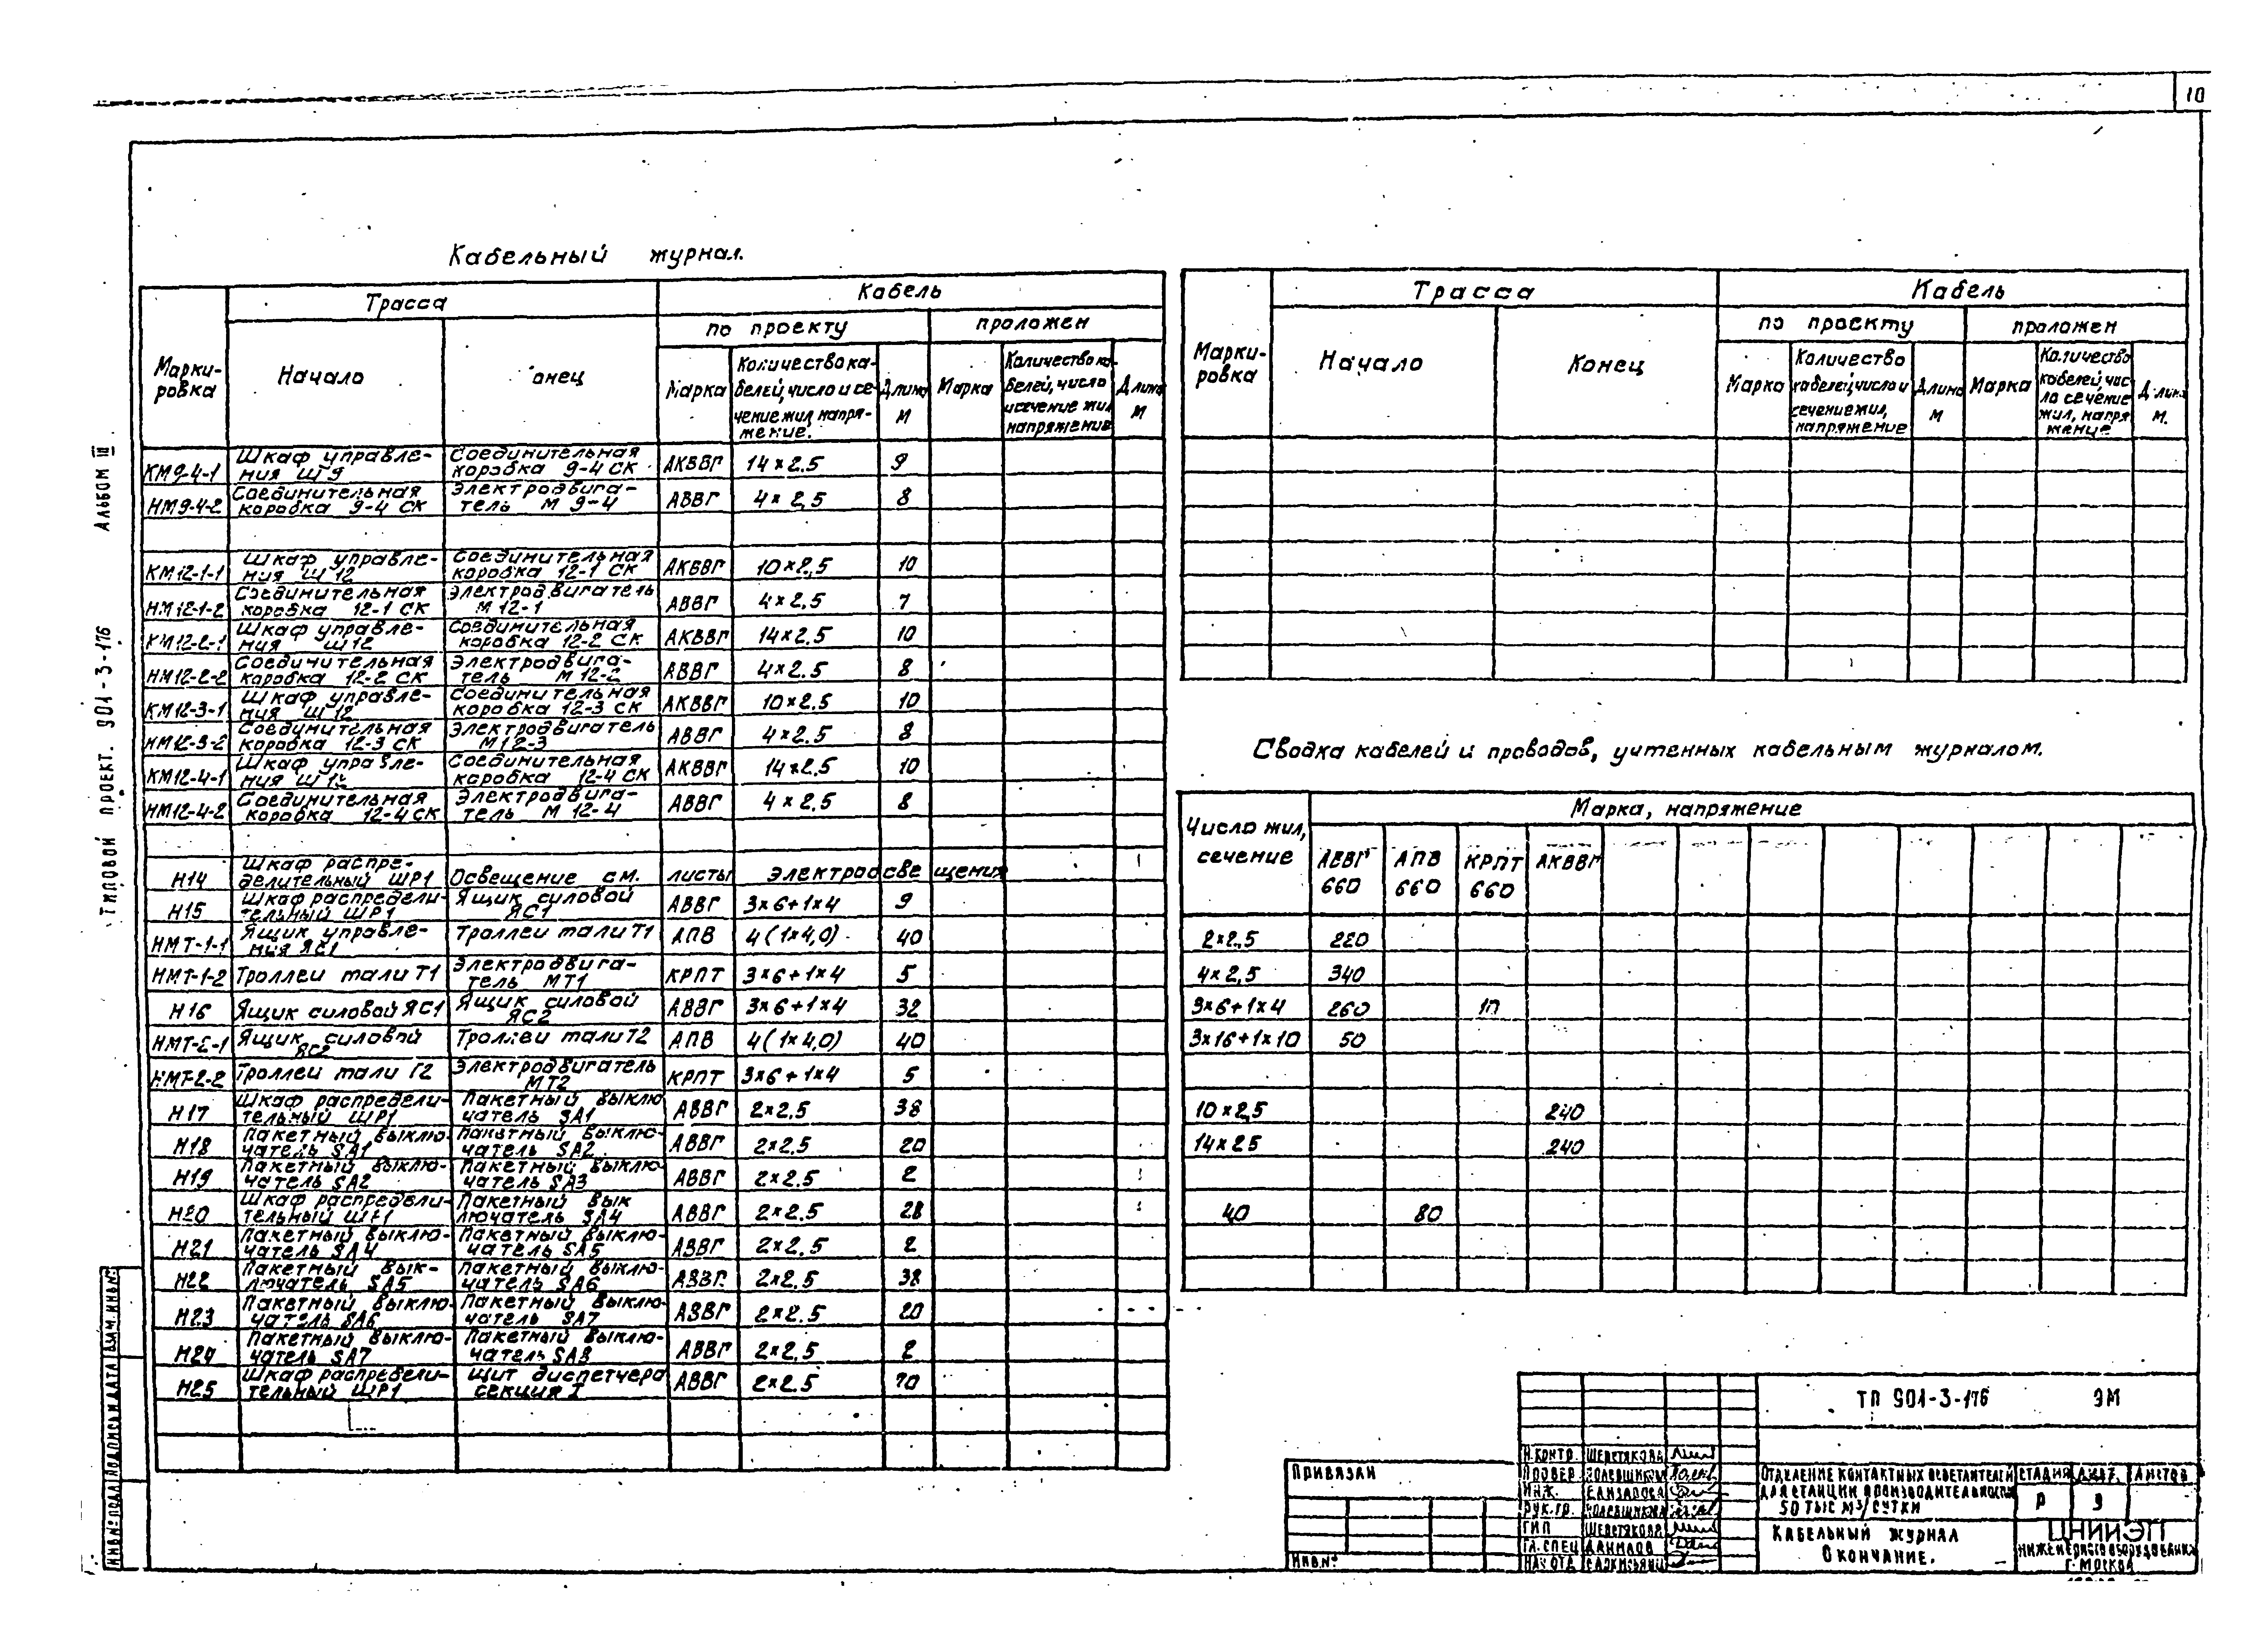 10
Кабельный журнал.
Марки-
ровка
Трасса
Кабель
Начало
онец
по проекту
проложен
Марка
Количество ка-
белей, число и се-
чение жил, напря-
жение.
Длина
М
Марка
Количество ка-
белей, число
и сечение жил
напряжение
Длина
М
КМ9-4-1 Шкаф управле- Соединительная АКВВГ 14×2.5 9
ния Ш9 коробка 9-4 СК
НМ9-4-2 Соединительная Электродвига- АВВГ 4×2,5 8
коробка 9-4 СК тель М 9-4
КМ12-1-1 Шкаф управле- Соединительная АКВВГ 10×2,5 10
ния Ш12 коробка 12-1 СК
НМ12-1-2 Соединительная Электродвигатель АВВГ 4×2.5 7
коробка 12-1 СК М12-1
КМ12-2-1 Шкаф управле- Соединительная АКВВГ 14×2.5 10
ния Ш12 коробка 12-2 СК
НМ12-2-2 Соединительная Электродвига- АВВГ 4×2.5 8
коробка 12-2 СК тель М12-2
КМ12-3-1 Шкаф управле- Соединительная АКВВГ 10×2.5 10
ния Ш12 коробка 12-3 СК
НМ12-3-2 Соединительная Электродвигатель АВВГ 4×2.5 8
коробка 12-3 СК М12-3
КМ12-4-1 Шкаф управле- Соединительная АКВВГ 14×2.5 10
ния Ш12 коробка 12-4 СК
НМ12-4-2 Соединительная Электродвига- АВВГ 4×2.5 8
коробка 12-4 СК тель М 12-4
Н14 Шкаф распре- Освещение см. листы электроосвещения
делительный ШР1
Н15 Шкаф распредели- Ящик силовой АВВГ 3×6+1×4 9
тельный ШР1 ЯС1
НМТ-1-1 Ящик управле- Троллеи тали Т1 АПВ 4(1×4,0) 40
ния ЯС1
НМТ-1-2 Троллеи тали Т1 Электродвига- КРПТ 3×6+1×4 5
тель МТ1
Н16 Ящик силовой ЯС1 Ящик силовой АВВГ 3×6+1×4 32
ЯС2
НМТ-2-1 Ящик силовой Троллеи тали Т2 АПВ 4(1×4,0) 40
ЯС2
НМТ-2-2 Троллеи тали Т2 Электродвигатель КРПТ 3×6+1×4 5
МТ2
Н17 Шкаф распредели- Пакетный выклю АВВГ 2×2.5 38
тельный ШР1 чатель SA1
Н18 Пакетный выклю- Пакетный выклю- АВВГ 2×2.5 20
чатель SA1 чатель SA2
Н19 Пакетный выклю- Пакетный выклю- АВВГ 2×2.5 2
чатель SA2 чатель SA3
Н20 Шкаф распредели- Пакетный вык АВВГ 2×2.5 28
тельный ШР1 лючатель SA4
Н21 Пакетный выклю- Пакетный выклю- АВВГ 2×2.5 2
чатель SA4 чатель SA5
Н22 Пакетный вык- Пакетный выклю- АВВГ 2×2.5 38
лючатель SA5 чатель SA6
Н23 Пакетный выклю- Пакетный выклю- АВВГ 2×2.5 20
чатель SA6 чатель SA7
Н24 Пакетный выклю- Пакетный выклю- АВВГ 2×2.5 2
чатель SA7 чатель SA8
Н25 Шкаф распредели- Щит диспетчера АВВГ 2×2.5 70
тельный ШР1 секция I
Марки-
ровка
Трасса
Кабель
Начало
Конец
по проекту
проложен
Марка
Количество
кабелей, число и
сечение жил,
напряжение
Длина
М
Марка
Количество
кабелей чис
ло сечение
жил, напря
жение
Длина
М.
Сводка кабелей и проводов, учтенных кабельным журналом.
Число жил,
сечение
Марка, напряжение
АВВГ АПВ КРПТ АКВВГ
660 660 660
2×2,5 220
4×2,5 340
3×6+1×4 260 10
3×16+1×10 50
10×2,5 240
14×25 240
40 80
АЛЬБОМ III
ТИПОВОЙ ПРОЕКТ. 901-3-176
ИНВ.№ПОДЛ ПОДПИСЬ И ДАТА ВЗАМ.ИНВ.№
ПРИВЯЗАН
ИНВ.№
ТП 901-3-176 ЭМ
Н.КОНТР. ШЕРСТЯКОВА
ПРОВЕР.
ИНЖ. ЕЛИЗАРОВА
РУК.ГР.
ГИП ШЕРСТЯКОВА
ГЛ.СПЕЦ ДАНИЛОВ
НАЧ.ОТД
ОТДЕЛЕНИЕ КОНТАКТНЫХ ОСВЕТЛИТЕЛЕЙ
ДЛЯ СТАНЦИИ ПРОИЗВОДИТЕЛЬНОСТЬЮ
50 ТЫС М³/СУТКИ
СТАДИЯ ЛИСТ ЛИСТОВ
Р 9
КАБЕЛЬНЫЙ ЖУРНАЛ
ОКОНЧАНИЕ.
ЦНИИЭП
ИНЖЕНЕРНОГО ОБОРУДОВАНИЯ
Г. МОСКВА